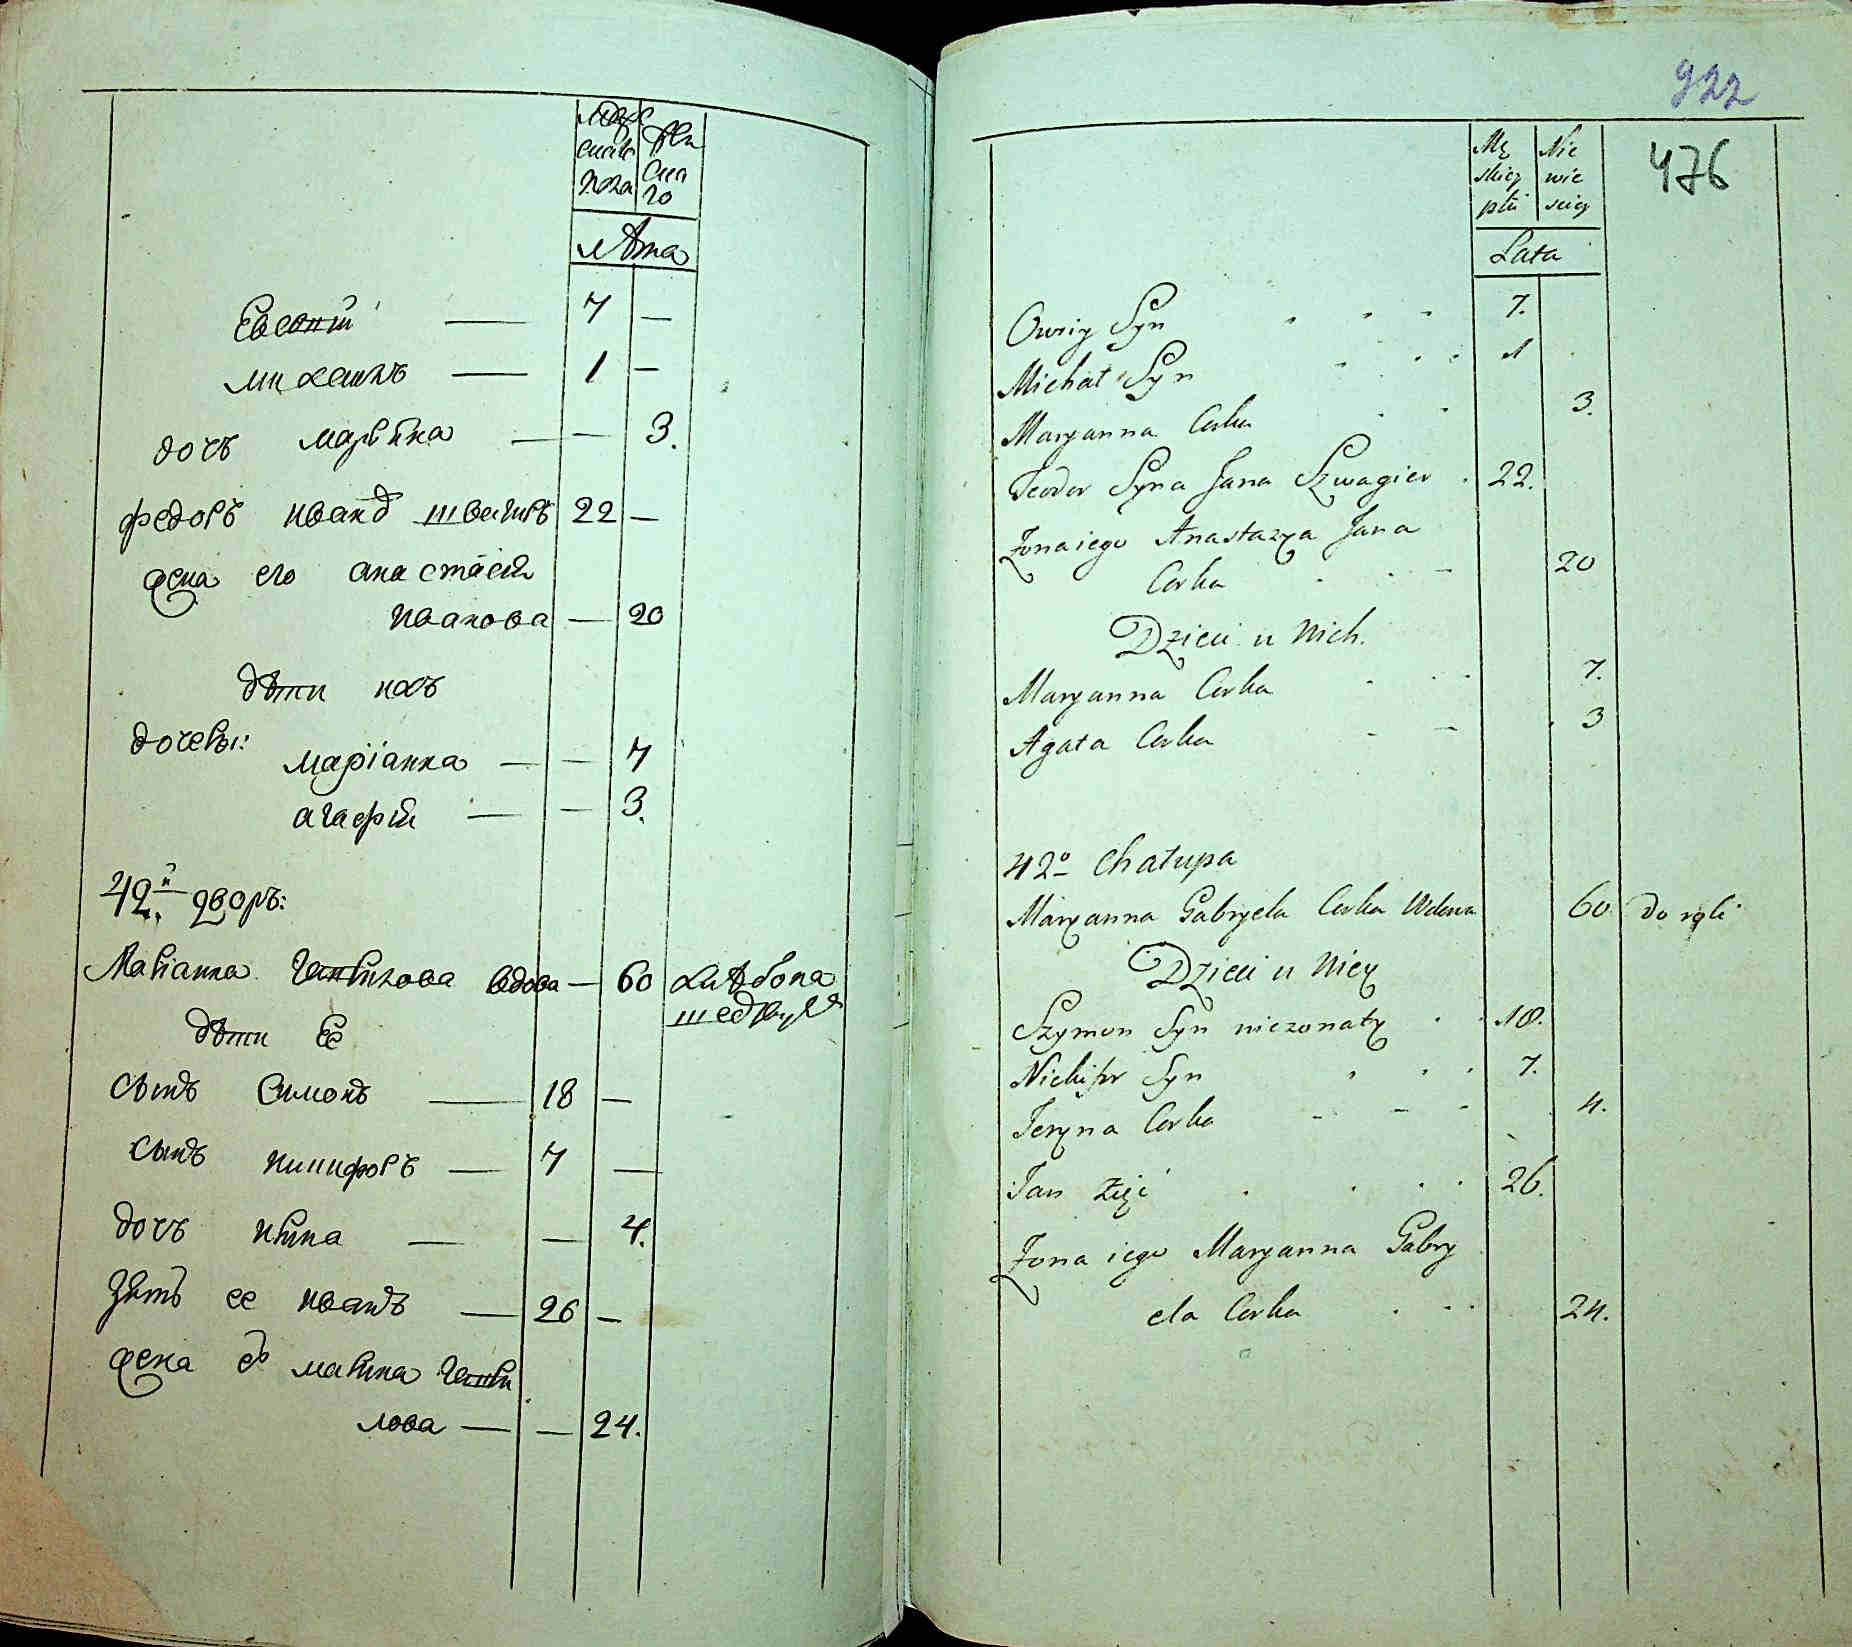 мужеска пола
женскаго
лѣта
Евсевій — 7 —
михаилъ — 1 —
дочь марьяна — — 3.
федоръ иванъ швагиръ 22 —
жена его анастасія
иванова — 20
дѣти ихъ
дочеры:
маріанна — — 7
агафія — — 3.
42.й дворъ:
Маріанна Гаврилова вдова — 60 хлѣбопа
шедствуе
дѣти Ее
сынъ Симонъ — 18 —
сынъ никифоръ — 7 —
дочь ирина — — 4.
зять ее иванъ — 26 —
жена его марина Гаври
лова — — 24.
922
476
Mę skiey płci
Nie wie sciey
Lata
Owsiy Syn 7.
Michał Syn 1
Maryanna Corka 3.
Teodor Syna Jana Szwagier 22.
Zona iego Anastazya Jana
Corka 20
Dzieci u Nich.
Maryanna Corka 7.
Agata Corka 3
42o Chałupa
Maryanna Gabryela Corka Wdowa 60 do roli
Dzieci u Niey
Szymon Syn niezonaty 18.
Nichipor Syn 7.
Jeryna Corka 4.
Jan Zięć 26.
Zona iego Maryanna Gabry
ela Corka 24.